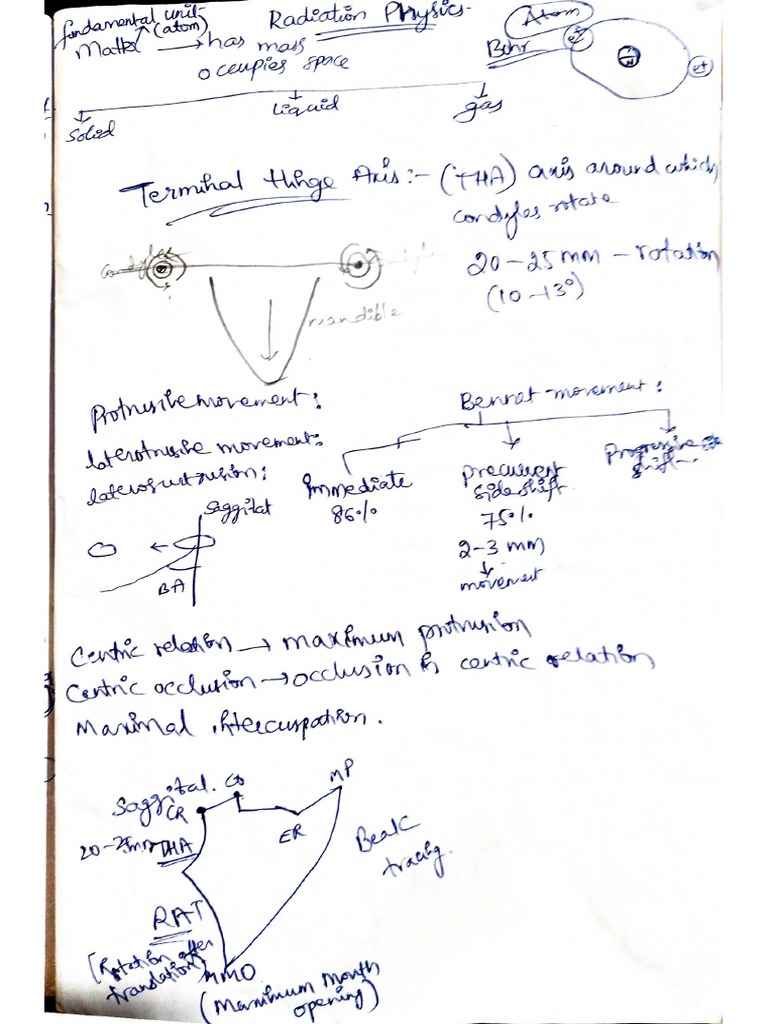 fundamental unit (atom)
Radiation Physics
Atom
Matter → has mass
occupies space
Bohr
e-
e+
Solid
Liquid
gas
Terminal Hinge Axis :- (THA) axis around which
condyles rotate
20-25 mm - rotation
(10-13°)
mandible
Protrusive movement :
Bennet movement :
laterotrusive movement:
Immediate
86%
Precurrent
side shift
75%
2-3 mm
↓
movement
Progressive
shift
Saggital
BA
Centric relation → maximum protrusion
Centric occlusion → occlusion in centric relation
Maximal intercuspation.
Saggital.
CO
MP
CR
ER
THA
Beak
tracing.
RAT
(Rotation after
translation)
MMO
(Maximum Mouth
opening)